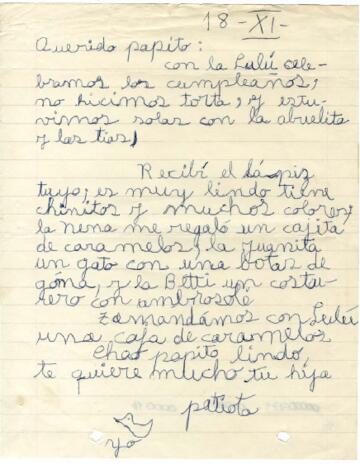 18-XI-
Querido papito:
con la Lulú cele-
bramos los cumpleaños;
no hicimos torta, y estu-
vimos solas con la abuelita
y las tías,
Recibí el lápiz
tuyo; es muy lindo tiene
chinitos y muchos colores;
la nena me regaló un cajita
de caramelos, la Juanita
un gato con una botas de
góma, y la Betti un costu-
rero con
mandámos con Lulú
una caja de caramelos
Chao papito lindo,
te quiere mucho tu hija
patiota
yo